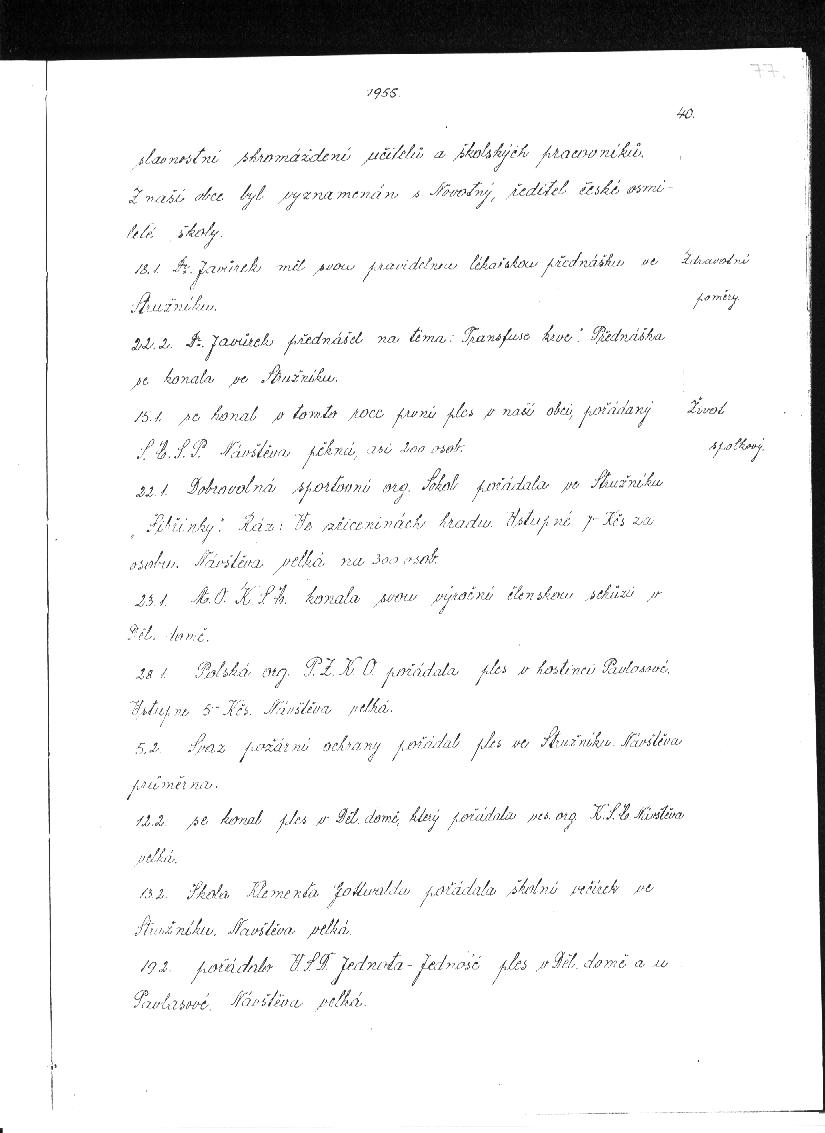 77.
1955.
40.
slavnostní shromáždění učitelů a školských pracovníků.
Z naší obce byl vyznamenán s Novotný, ředitel české osmi-
leté školy.
18.1. Dr. Javůrek měl svou pravidelnou lékařskou přednášku ve
Zdravotní
Stružníku.
poměry.
22.2. Dr. Javůrek přednášel na téma: Transfuse krve". Přednáška
se konala ve Stružníku.
15.1. se konal v tomto roce první ples v naší obci, pořádaný
Život
S.Č.S.P. Návštěva pěkná, asi 200 osob.
spolkový.
22.1. Dobrovolná sportovní org. Sokol pořádala ve Stružníku
„Šibřinky". Ráz: Ve zříceninách hradu. Vstupné 7- Kčs za
osobu. Návštěva velká na 300 osob.
23.1. M.O. K.S.Č. konala svou výroční členskou schůzi v
Děl. domě.
28.1. Polská org. P.Z.K.O. pořádala ples v hostinci Pavlasové.
Vstupné 5- Kčs. Návštěva velká.
5.2. Svaz požární ochrany pořádal ples ve Stružníku. Návštěva
průměrna.
12.2. se konal ples v Děl. domě, který pořádala ves. org. K.S.Č. Návštěva
velká.
13.2. Škola Klementa Gottwalda pořádala školní večírek ve
Stružníku. Návštěva velká.
19.2. pořádalo V.S.D. Jednota-Jedność ples v Děl. domě a u
Pavlasové. Návštěva velká.